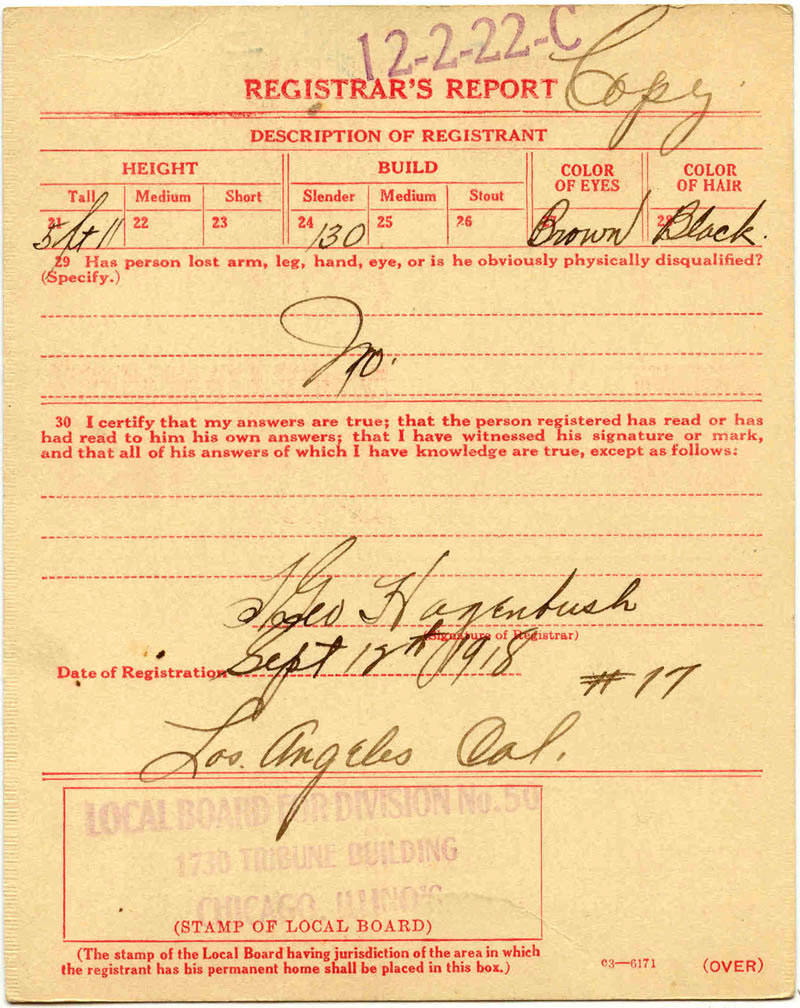 12-2-22-C
REGISTRAR'S REPORT Copy
DESCRIPTION OF REGISTRANT
HEIGHT BUILD COLOR OF EYES COLOR OF HAIR
Tall Medium Short Slender Medium Stout
21 22 23 24 25 26 27 28
5 ft 11 130 Brown Black.
29 Has person lost arm, leg, hand, eye, or is he obviously physically disqualified?
(Specify.)
No.
30 I certify that my answers are true; that the person registered has read or has
had read to him his own answers; that I have witnessed his signature or mark,
and that all of his answers of which I have knowledge are true, except as follows:
Geo Hagenbush
(Signature of Registrar)
Date of Registration Sept 12th 1918
#17
Los. Angeles Cal.
LOCAL BOARD FOR DIVISION No. 50
1730 TRIBUNE BUILDING
CHICAGO, ILLINOIS
(STAMP OF LOCAL BOARD)
(The stamp of the Local Board having jurisdiction of the area in which
the registrant has his permanent home shall be placed in this box.)
03—6171 (OVER)